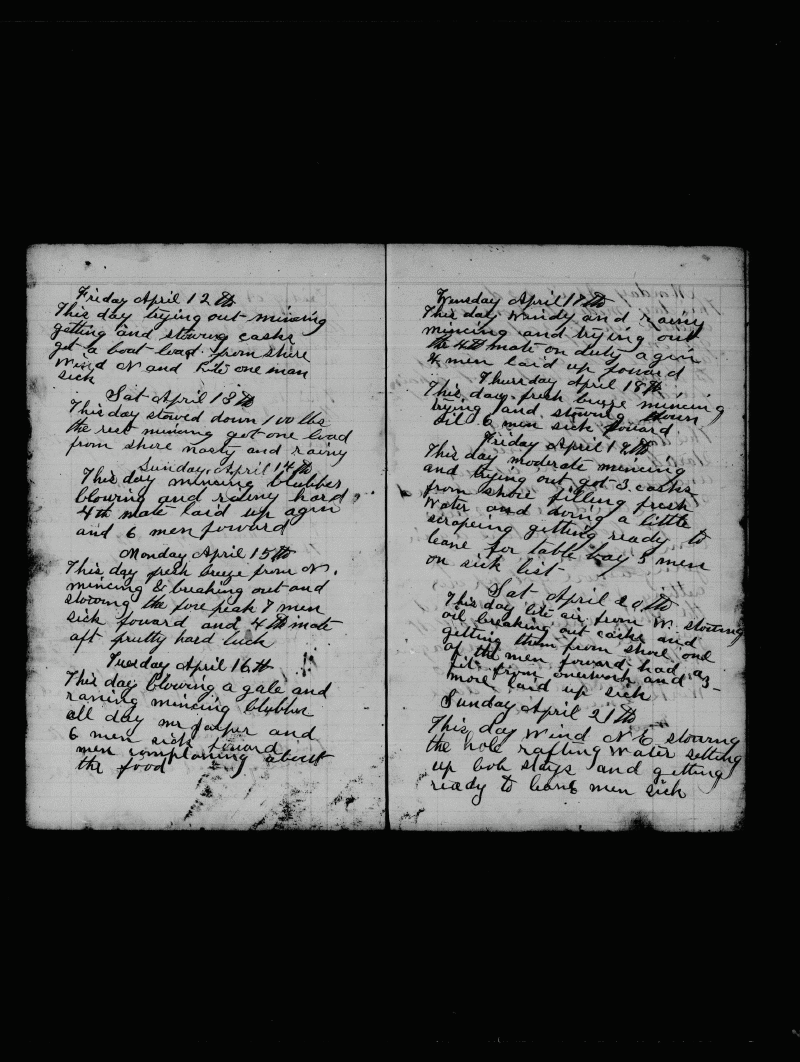 Friday April 12th
This day trying out mincing
getting and stowing casks
got a boat load from shore
Wind N and lite one man
sick
Sat April 13th
This day stowed down 100 bbls
the rest mincing got one load
from shore nasty and rainy
Sunday April 14th
This day mincing blubber
blowing and rainy hard
4th mate laid up agin
and 6 men foward
Monday April 15th
This day fresh breeze from N.
mincing & breaking out and
stowing the fore peak 7 men
sick foward and 4th mate
aft pretty hard luck
Tuesday April 16th
This day blowing a gale and
raning mincing blubber
all day mr and
6 men sick foward
men complaning about
the food
Wensday April 17th
This day Windy and rainy
mincing and trying out
the 4th mate on duty agin
4 men laid up foward
Thursday April 18th
This day fresh breze mincing
trying and stowing down
oil 6 men sick foward
Friday April 19th
This day moderate mincing
and trying out got 3 casks
from shore filling fresh
Water and doing a little
scrapeing getting ready to
leave for table bay 5 men
on sick list
Sat April 20th
This day lite air from W. stowing
oil breaking out casks and
getting them from shore one
of the men foward had a
fit from overwork and 3
more laid up sick
Sunday April 21th
This day Wind N E stowing
the hole rafting Water setting
up bob stays and getting
ready to leave 6 men sick